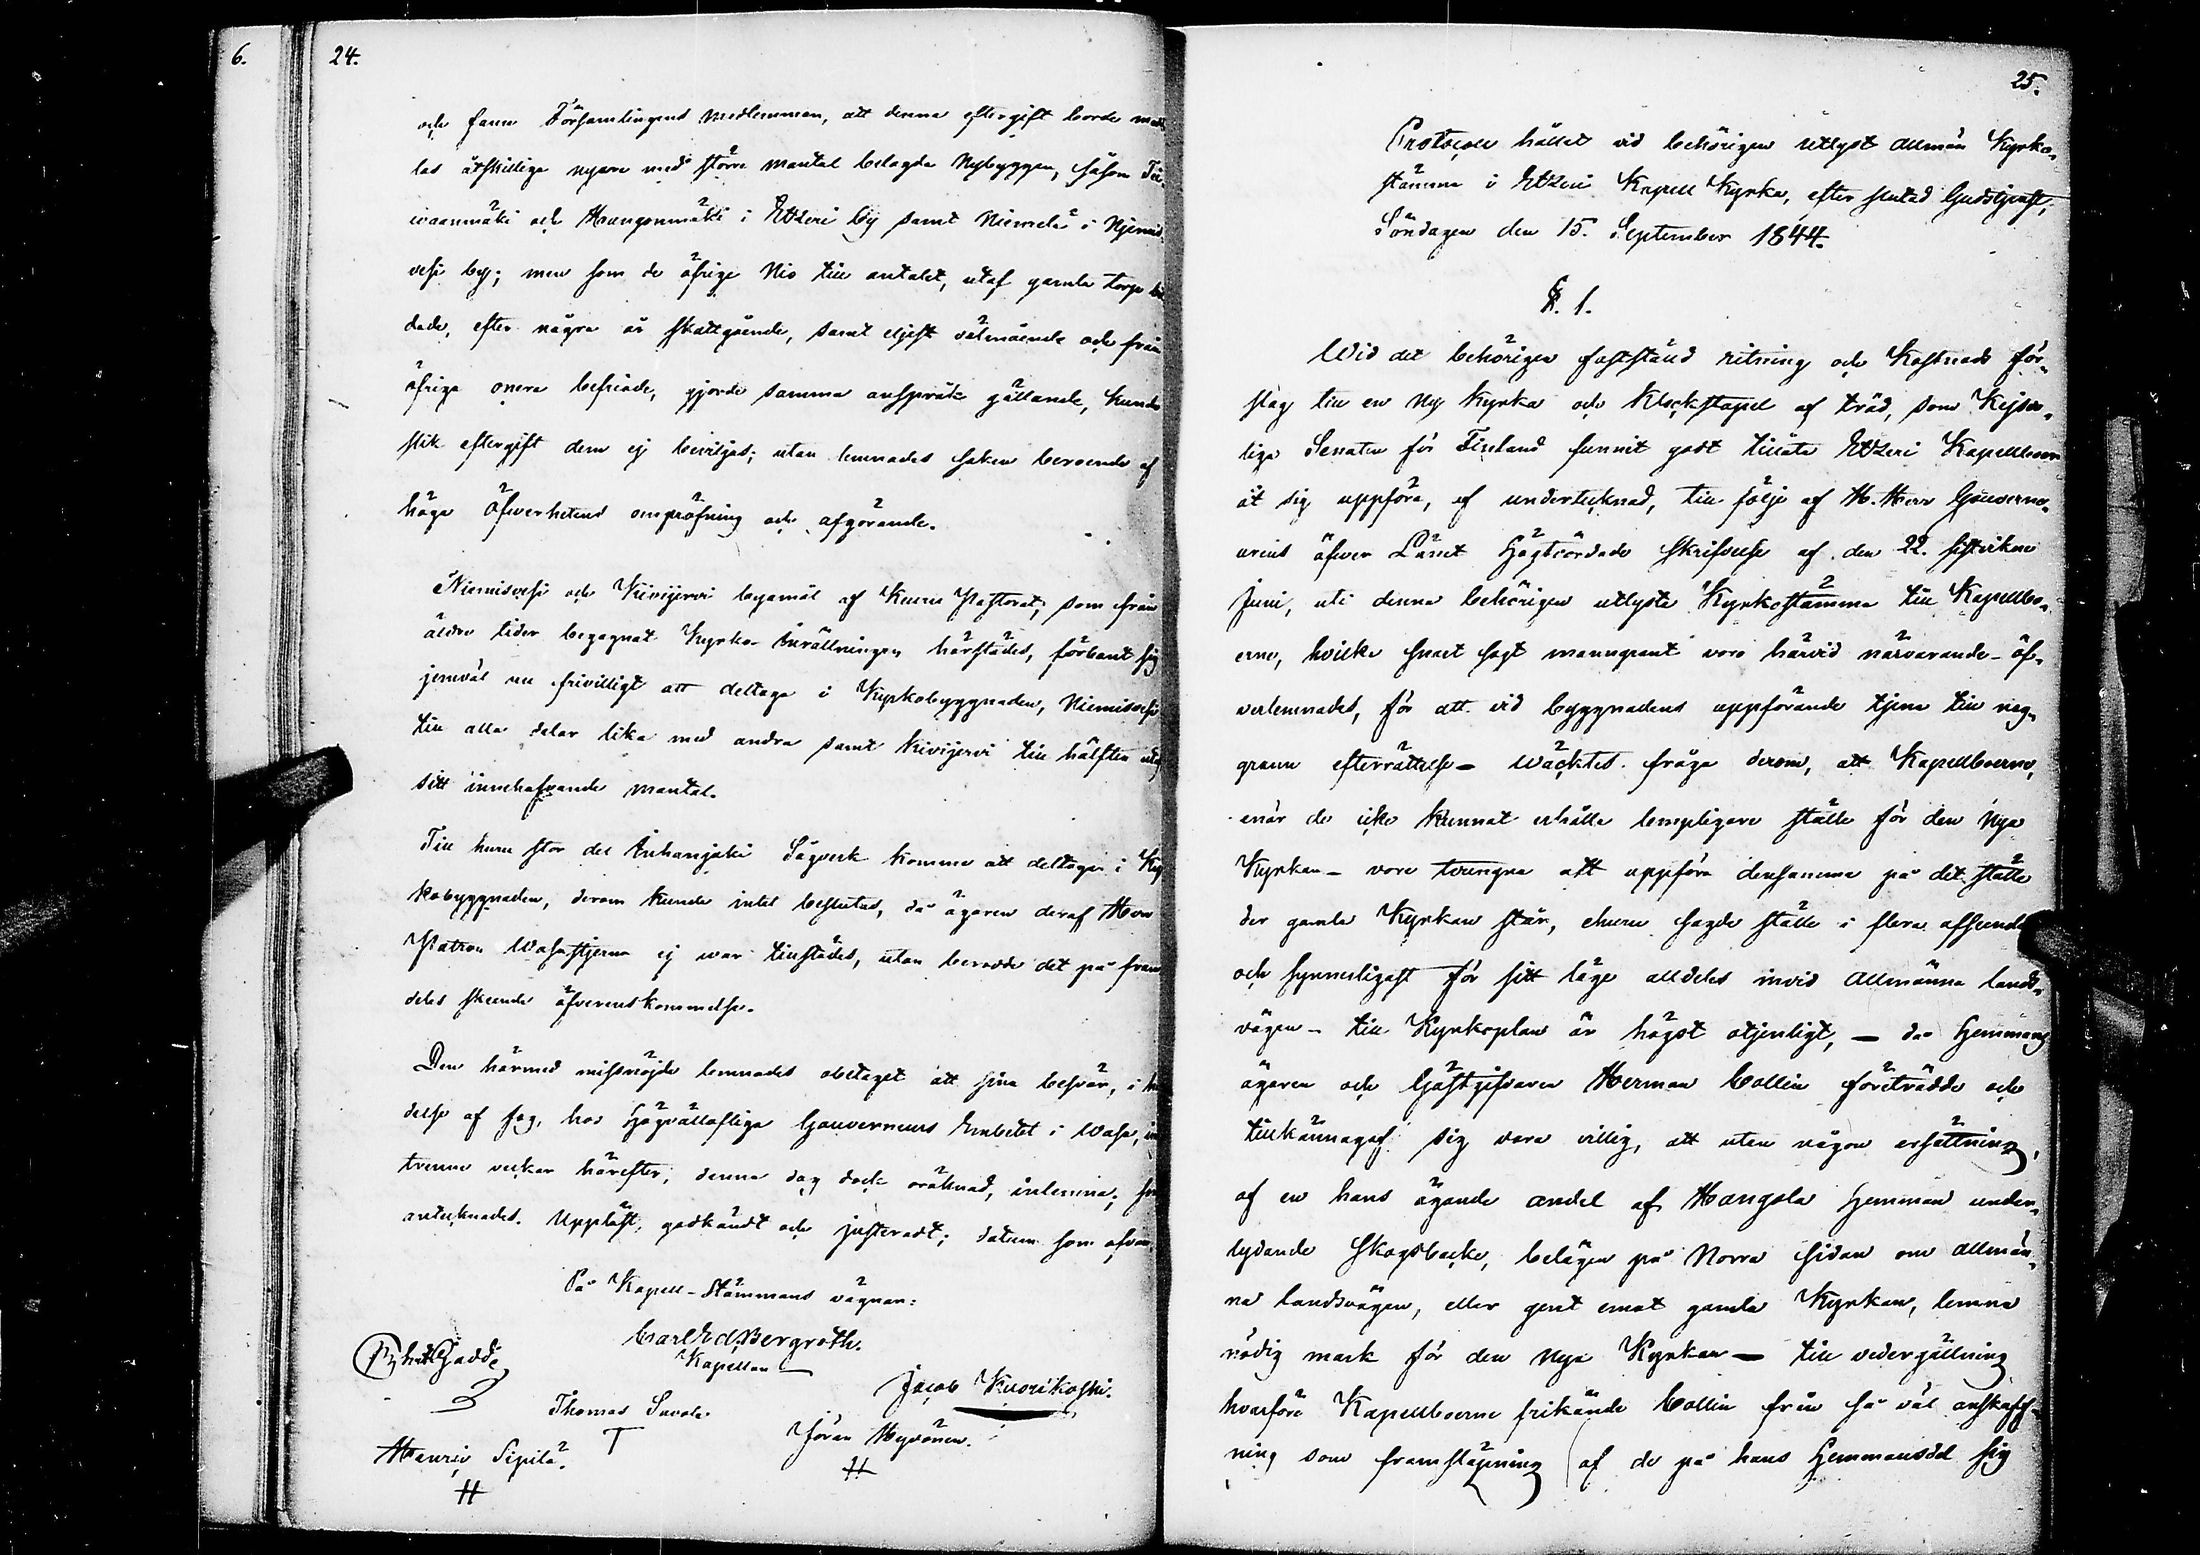 6.
24.
och fann Församlingens medlemmar, att denna eftergift borde med
las åtskillige nyare med större mantal belagda Nybyggen, såsom
waanmäki och Hangonmäki i Etzeri by samt Niemelä i Njemis
vesi by; men som de öfrige Nio till antalet, utaf gamla torp bil
dade, efter några år skattgående, samt eljest välmående och från
öfriga onera befriade, gjorde samma anspråk gällande, kunde
slik eftergift dem ej beviljas; utan lemnades saken beroende af
höga Öfwerhetens ompröfning och afgörande.
Niemisvesi och Kivijerwi byamäl af Keuru Pastorat, som från
äldre tider begagnat Kyrko-Inrättningen härstädes, förbant sig
jemväl nu frivilligt att deltaga i Kyrkobyggnaden, Niemisvesi
till alla delar lika med andra samt Kivijervi till hälften utaf
sitt innehafvande mantal.
Till huru stor del Inhanjoki Sågverk komme att deltaga i Kyr
kobyggnaden, derom kunde intet beslutas, då ägaren deraf Herr
Patron Wasastjerna ej war tillstädes, utan berodde det på fram
deles skeende öfverenskommelse.
Den härmed missnöjde lemnades obetaget att sina besvär, i hän
delse af fog, hos Högvällofliga Gouverneurs Embetet i Wasa, in
trenne veckor härefter, denna dag dock oräknad, inlemna; som
antecknades. Uppläst, godkändt och justeradt; datum som ofvan.
På Kapell-Stämmans vägnar:
Carl Ed. Bergroth.
Kapellan
Gadde
Jacob Kuorikoski.
Thomas Savola
T
Jöran Hyvönen.
H
Henric Sipilä.
H
25.
Protocoll hållet vid behörigen utlyst allmän Kyrko-
stämma i Etzeri Kapell Kyrka, efter slutad Gudstjenst,
Söndagen den 15. September 1844.
§. 1.
Wid det behörigen fastställd ritning och Kostnads för-
slag till en ny Kyrka och Klockstapel af träd, som Kejser-
liga Senaten för Finland funnit godt tillåta Etzeri Kapellboer
åt sig uppföra, af undertecknad, till följe af H. Herr Gouverne-
urens öfwer Länet Högtvördade skrifvelse af den 22. sistvikne
Juni, uti denna behörigen utlysta Kyrkostämma till Kapellbo-
erne, hvilka snart sagt manngrant voro härvid närvarande - öf-
verlemnades, för att vid byggnadens uppförande tjena till nog-
grann efterrättelse - wäcktes fråga derom, att Kapellboerne,
enär de icke kunnat erhålla lempligare ställe för den nya
Kyrkan - vore tvungna att uppföra densamma på det ställe
der gamla Kyrkan står, ehuru sagde ställe i flera afseende
och synnerligast för sitt läge alldeles invid Allmänna lands-
vägen - till Kyrkoplan är högst otjenligt, - då Hemmans
ägaren och Gästgifvaren Herman Collin företrädde och
tillkännagaf sig vara villig, att utan någon ersättning,
af en hans ägande andel af Hangola hemman under-
lydande Skogsbacke, belägen på Norra sidan om Allmän-
na landsvägen, eller gent emot gamla Kyrkan, lemna
nödig mark för den nya Kyrkan - till vedergällning
hvarföre Kapellboerne frikände Collin från så väl anskaff-
ning som framsläpning af de på hans Hemmansdel sig